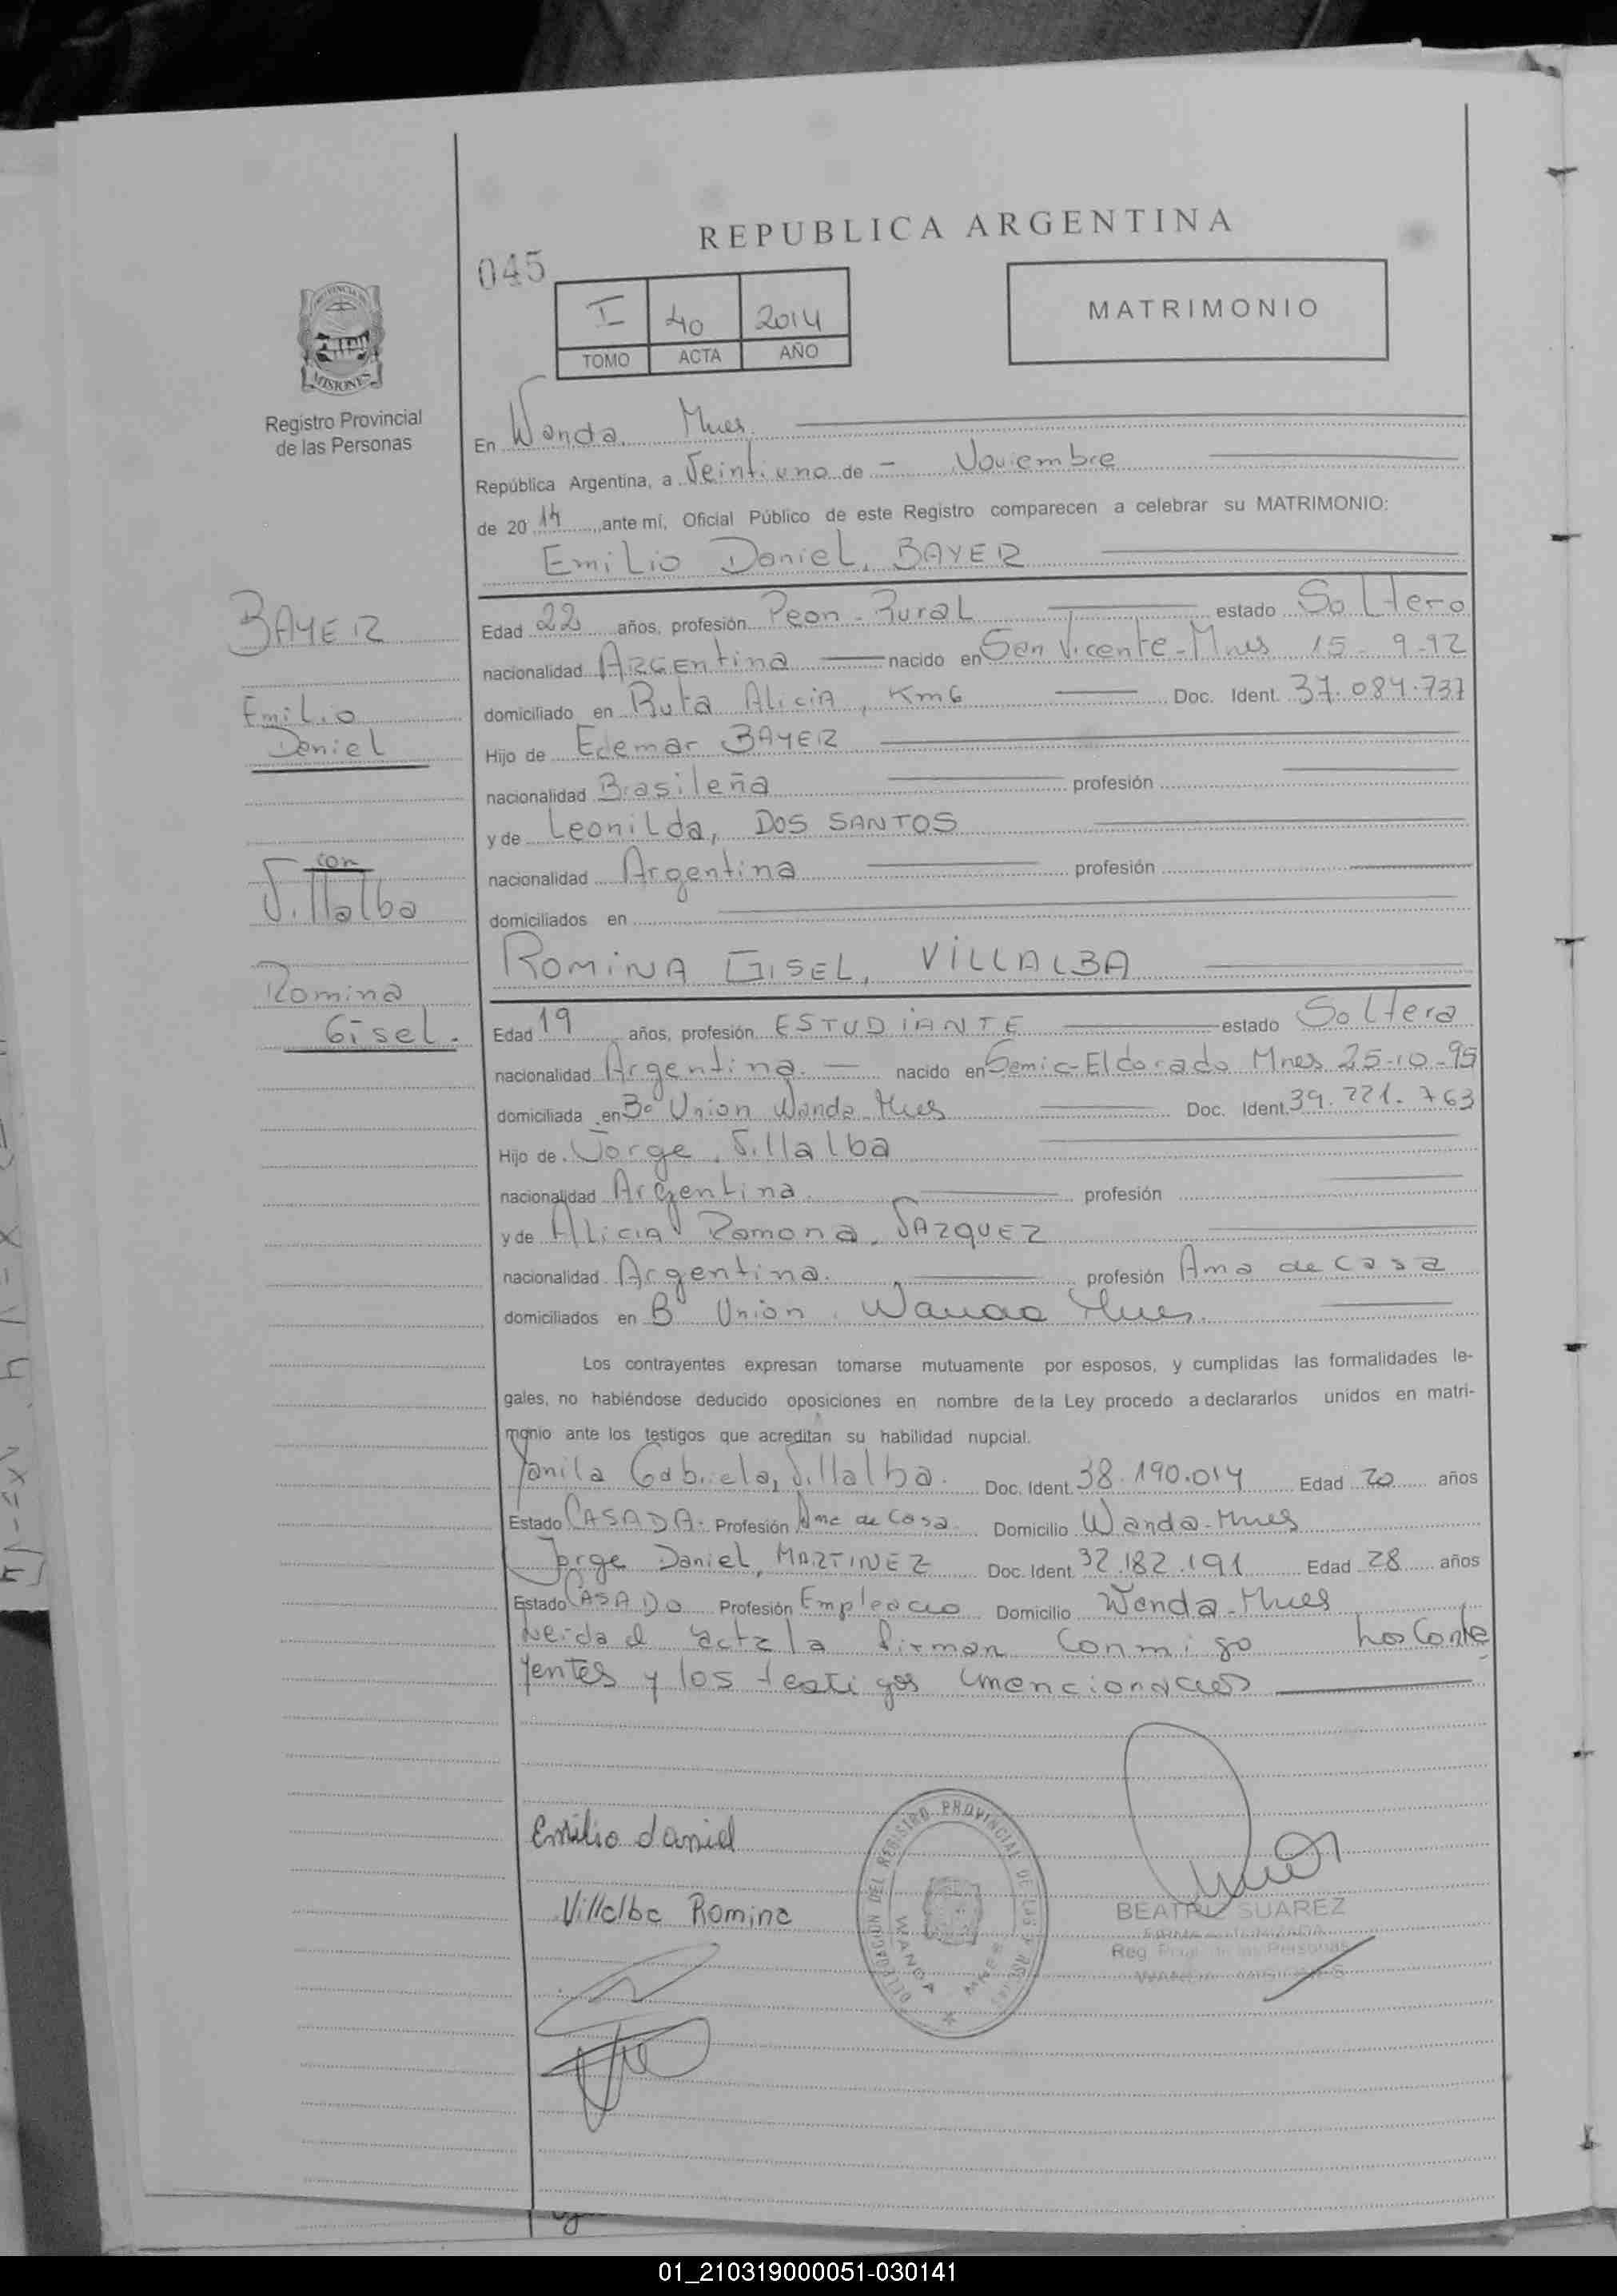 REPUBLICA ARGENTINA
045
I 40 2014
TOMO ACTA AÑO
MATRIMONIO
PROVINCIA DE
MISIONES
Registro Provincial
de las Personas
En Wanda Mnes
República Argentina, a Veintiuno de - Noviembre
de 20 14 ante mí, Oficial Público de este Registro comparecen a celebrar su MATRIMONIO:
Emilio Daniel, BAYER
BAYER
Emilio
Daniel
con
Villalba
Romina
Gisel.
Edad 22 años, profesión Peon Rural estado Soltero
nacionalidad Argentina nacido en San Vicente - Mnes 15-9-92
domiciliado en Ruta Alicia, Km 6 Doc. Ident. 37.084.737
Hijo de Edemar BAYER
nacionalidad Brasileña profesión
y de Leonilda, DOS SANTOS
nacionalidad Argentina profesión
domiciliados en
ROMINA GISEL, VILLALBA
Edad 19 años, profesión ESTUDIANTE estado Soltera
nacionalidad Argentina. nacido en Eldorado Mnes 25-10-95
domiciliada en Bº Union Wanda Mnes Doc. Ident. 39.221.763
Hijo de Jorge, Villalba
nacionalidad Argentina profesión
y de Alicia Ramona, VAZQUEZ
nacionalidad Argentina. profesión Ama de casa
domiciliados en Bº Union, Wanda Mnes.
Los contrayentes expresan tomarse mutuamente por esposos, y cumplidas las formalidades le-
gales, no habiéndose deducido oposiciones en nombre de la Ley procedo a declararlos unidos en matri-
monio ante los testigos que acreditan su habilidad nupcial.
Yanila Gabriela, Villalba. Doc. Ident. 38.190.014 Edad 20 años
Estado CASADA. Profesión Ama de Casa Domicilio Wanda-Mnes
Jorge Daniel, MARTINEZ Doc. Ident. 32.182.191 Edad 28 años
Estado CASADO Profesión Empleado Domicilio Wanda-Mnes
Leida el acta la firman conmigo los Contra
yentes y los testigos mencionados
Emilio daniel
Villalba Romina
DELEGACION DEL REGISTRO PROVINCIAL DE LAS
WANDA MNES
BEATRIZ SUAREZ
FIRMA AUTORIZADA
Reg. Prov. de las Personas
WANDA - MISIONES
01_210319000051-030141